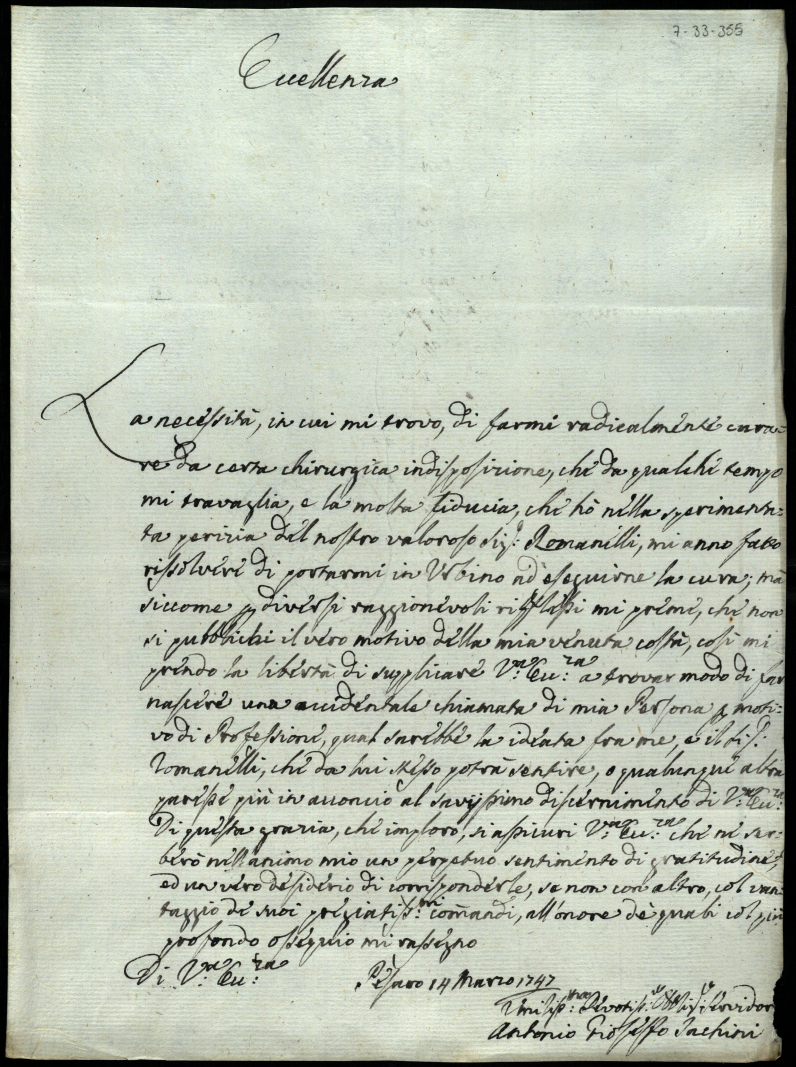 7-33-355
Eccellenza
La necessità, in cui mi trovo, di farmi radicalmente cura=
re da certa chirurgica indisposizione, che da qualche tempo
mi travaglia, e la molta fiducia, che hò nella sperimenta=
ta perizia del nostro valoroso Sig.r Romanelli, mi anno fatto
rissolvere di portarmi in Urbino ad eseguirne la cura; ma
siccome p diversi raggionevoli riflessi mi preme, che non
si pubblichi il vero motivo della mia venuta costà, così mi
prendo la libertà di supplicare V.ra Ecc.za a trovar modo di far
nascere una accidentale chiamata di mia Persona p moti=
vo di Professione, qual sarebbe la ideata fra me, e il Sig.r
Romanelli, che da lui stesso potrà sentire, o qualunque altra
paresse più in acconcio al savissimo discernimento di V.ra Ecc.za
Di questa grazia, che imploro, si assicuri V.ra Ecc.za che ne ser=
berò nell'animo mio un perpetuo sentimento di gratitudine,
ed un vero desiderio di corrisponderle, se non con altro, col van=
taggio de suoi pregiatiss.mi comandi, all'onore de quali col più
profondo ossequio mi rassegno
Di V.ra Ecc.za Pesaro 14 Marzo 1747
Umiliss.mo Devotis.o Obblig.o Servidor
Antonio Gioseffo